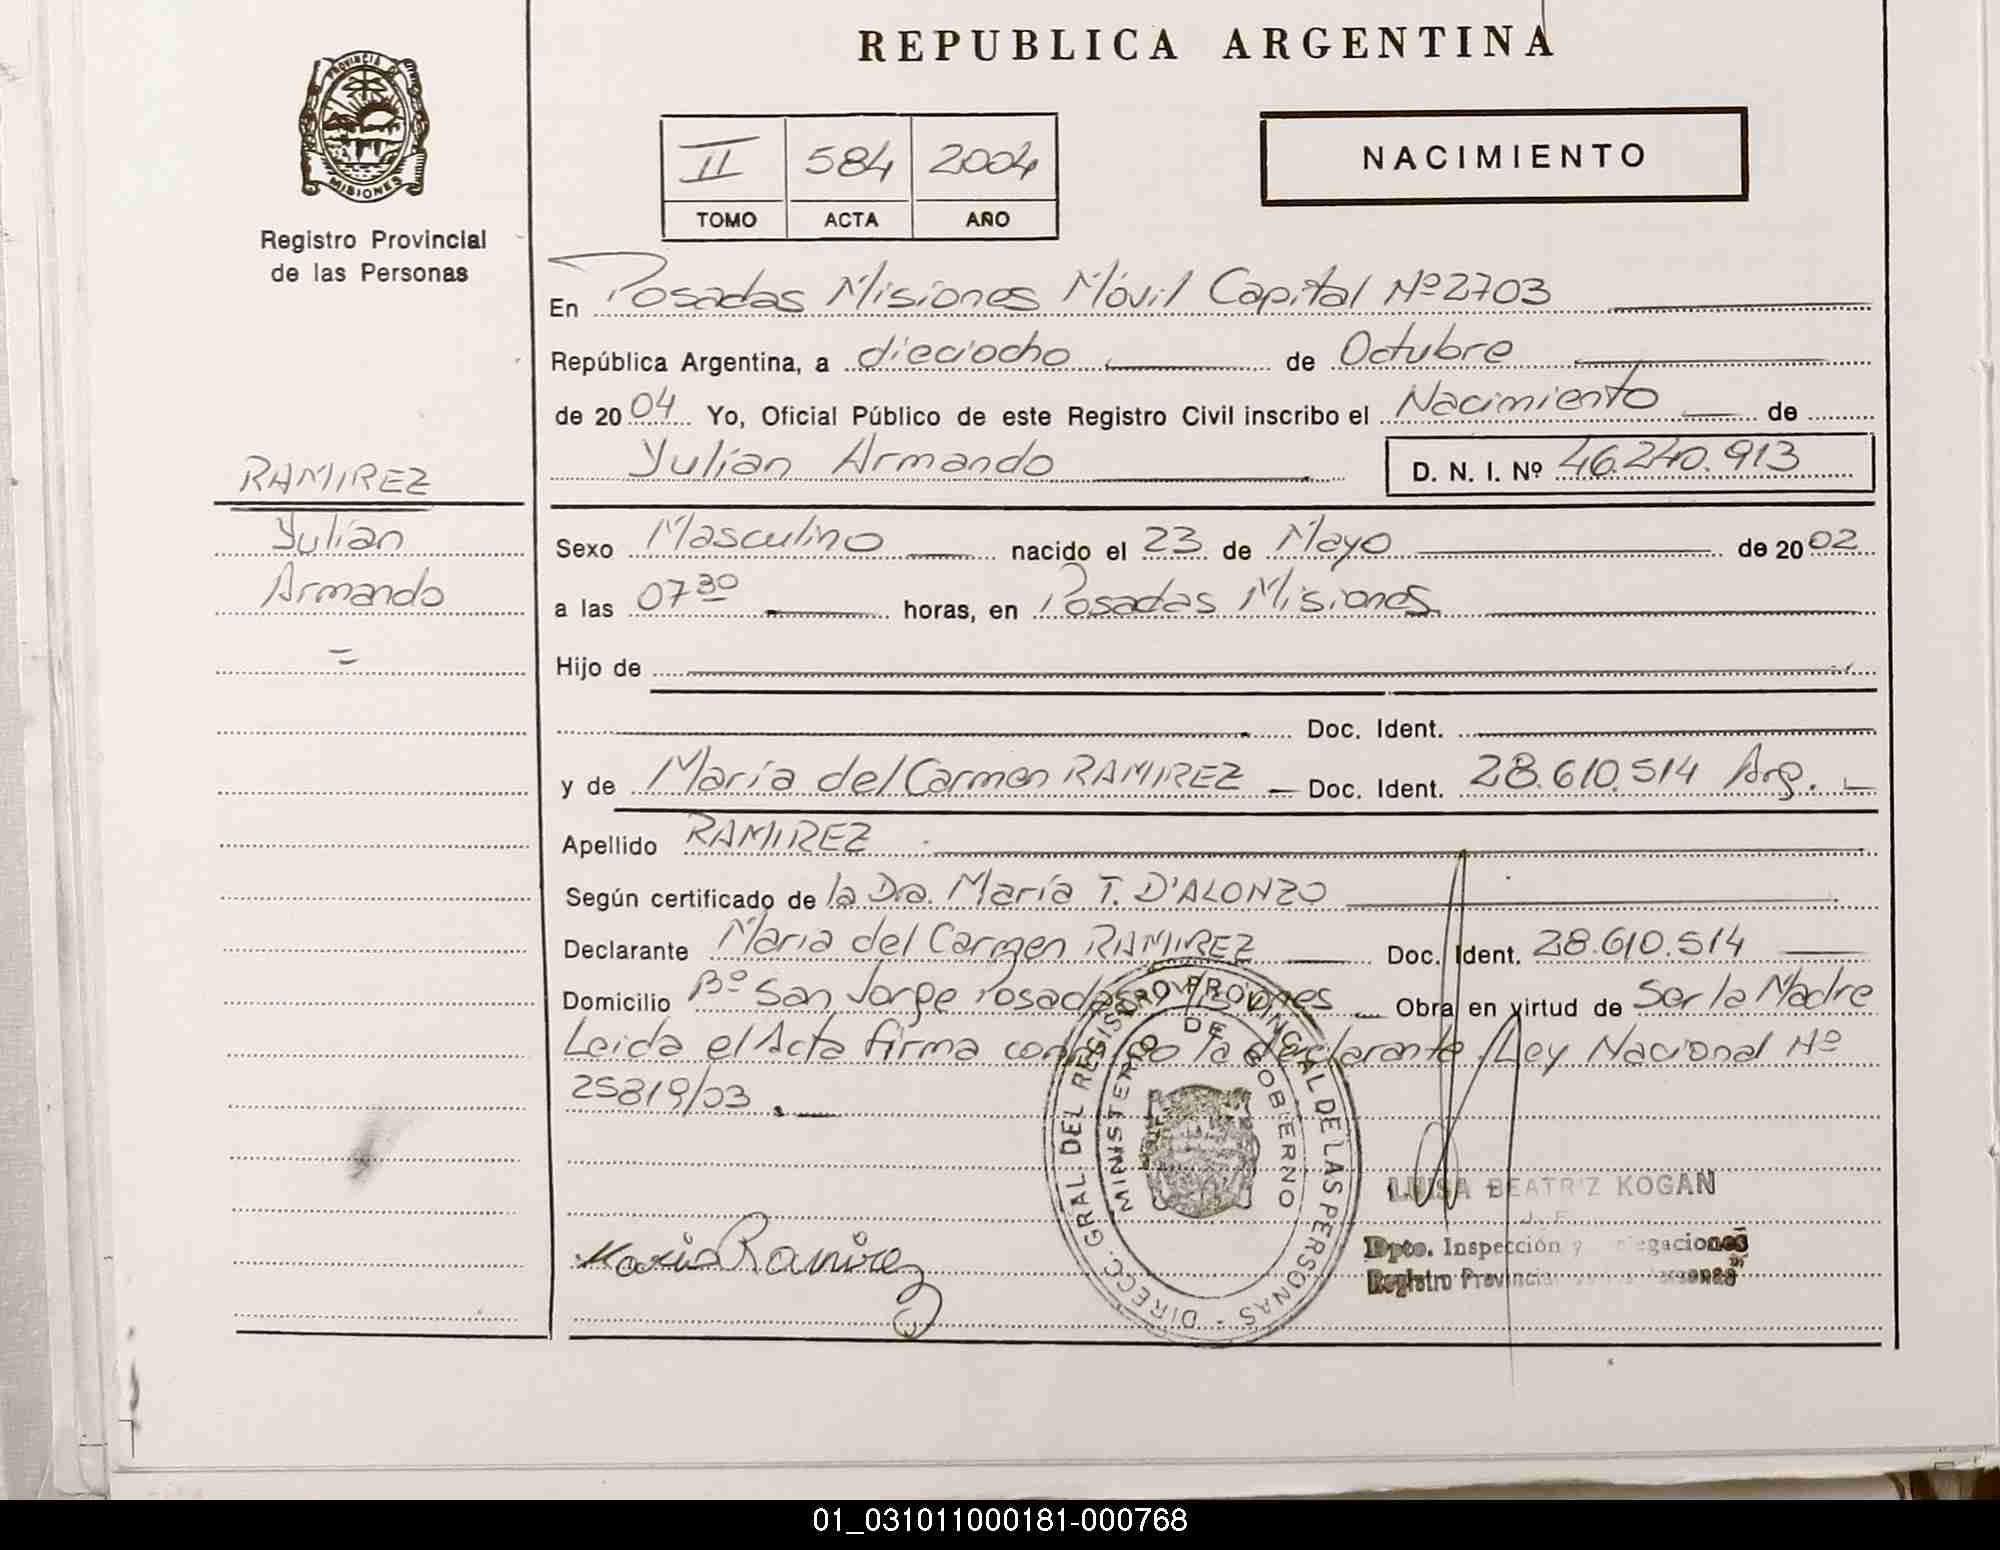 REPUBLICA ARGENTINA
PROVINCIA DE
MISIONES
Registro Provincial
de las Personas
II 584 2004
TOMO ACTA AÑO
NACIMIENTO
En Posadas Misiones Móvil Capital Nº 2703
República Argentina, a dieciocho de Octubre
de 2004 Yo, Oficial Público de este Registro Civil inscribo el Nacimiento de
Yulián Armando D. N. I. Nº 46.240.913
RAMIREZ
Yulián
Armando
=
Sexo Masculino nacido el 23 de Mayo de 2002
a las 07 30 horas, en Posadas Misiones
Hijo de
Doc. Ident.
y de María del Carmen RAMIREZ Doc. Ident. 28.610.514 Arg.
Apellido RAMIREZ
Según certificado de la Dra. María T. D'ALONZO
Declarante María del Carmen RAMIREZ Doc. Ident. 28.610.514
Domicilio Bº San Jorge Posadas Misiones Obra en virtud de Ser la Madre
Leida el Acta firma conmigo la declarante. Ley Nacional Nº
25819/03
DIRECC. GRAL. DEL REGISTRO PROVINCIAL DE LAS PERSONAS -
MINISTERIO DE GOBIERNO
Maria Ramirez
LUISA BEATRIZ KOGAN
Dpto. Inspección y
Registro Provincial
01_031011000181-000768